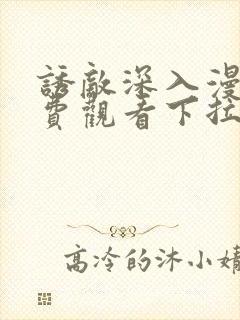 誘敵深入漫
費觀看下拉
高冷的沐小婧